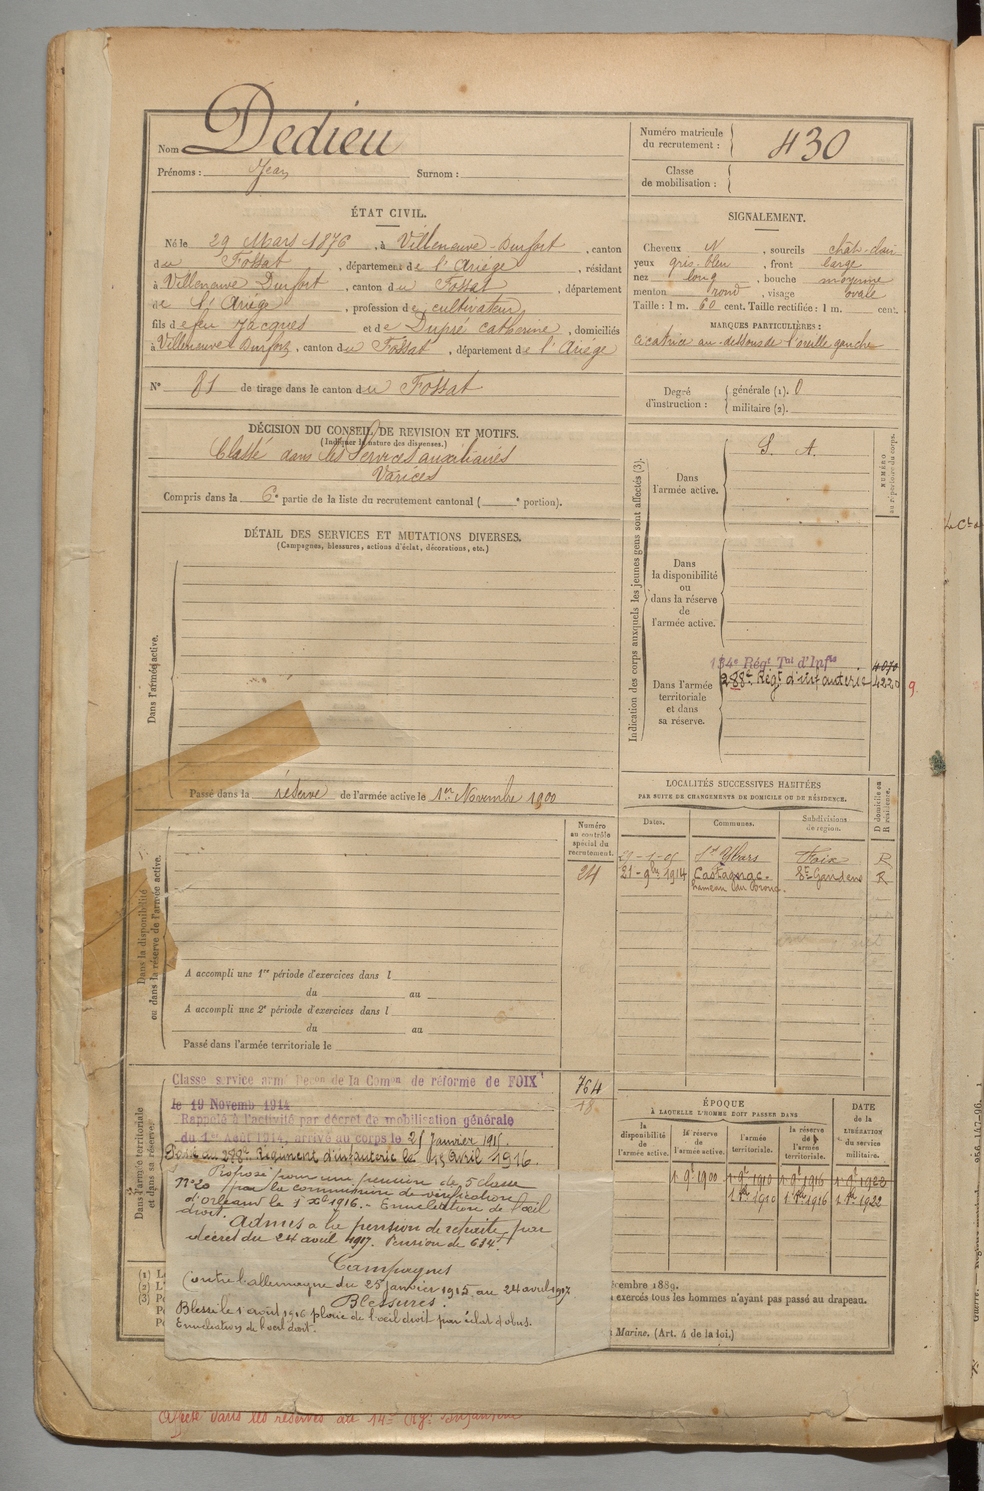 Nom Dedieu
Prénoms : Jean Surnom :
Numéro matricule du recrutement : 430
Classe de mobilisation :
ÉTAT CIVIL.
Né le 29 Mars 1876, à Villeneuve-Durfort, canton
du Fossat, département de l'Ariège, résidant
à Villeneuve Durfort, canton du Fossat, département
de l'Ariège, profession de cultivateur,
fils de feu Jacques et de Dupré Catherine, domiciliés
à Villeneuve Durfort, canton du Fossat, département de l'Ariège
N° 81 de tirage dans le canton du Fossat
SIGNALEMENT.
Cheveux N, sourcils chât-clair
yeux gris-bleu, front large
nez long, bouche moyenne
menton rond, visage ovale
Taille : 1 m. 60 cent. Taille rectifiée : 1 m. cent.
MARQUES PARTICULIÈRES :
cicatrice au-dessous de l'oreille gauche
Degré d'instruction : générale (1). 0
militaire (2).
DÉCISION DU CONSEIL DE REVISION ET MOTIFS.
(Indiquer la nature des dispenses.)
Classé dans les Services auxiliaires
Varices
Compris dans la 6e partie de la liste du recrutement cantonal ( e portion).
DÉTAIL DES SERVICES ET MUTATIONS DIVERSES.
(Campagnes, blessures, actions d'éclat, décorations, etc.)
Dans l'armée active.
Passé dans la réserve de l'armée active le 1er Novembre 1900
Indication des corps auxquels les jeunes gens sont affectés (3).
NUMÉRO au répertoire du corps.
Dans l'armée active. S. A.
Dans la disponibilité ou dans la réserve de l'armée active.
Dans l'armée territoriale et dans sa réserve.
134e Régt Tal d'Infie 4070
288e Régt d'infanterie 4220 9.
LOCALITÉS SUCCESSIVES HABITÉES
PAR SUITE DE CHANGEMENTS DE DOMICILE OU DE RÉSIDENCE.
Dates. Communes. Subdivisions de région. D domicile ou R résidence.
St Ybars Foix R
21-9bre 1914 Castagnac. St Gaudens R
hameau du
Numéro au contrôle spécial du recrutement.
24
Dans la disponibilité ou dans la réserve de l'armée active.
A accompli une 1re période d'exercices dans l
du au
A accompli une 2e période d'exercices dans l
du au
Passé dans l'armée territoriale le
Dans l'armée territoriale et dans sa réserve.
764
Classe service armé Décon de la Comon de réforme de FOIX
le 19 Novemb 1914
Rappelé à l'activité par décret de mobilisation générale
du 1er Août 1914, arrivé au corps le 25 Janvier 1915.
Passé au 288e Régiment d'infanterie le 15 avril 1916.
Proposé pour une pension de 5e classe
N° 20 par la commission de vérification
d'Orléans le 1 Xbre 1916. - Enucléation de l'œil
droit.
Admis a la pension de retraite par
décret du 24 avril 1917. Pension de 614f
Campagnes
Contre l'allemagne du 25 janvier 1915 au 24 avril 1917
Blessures.
Blessé le 1 août 1916 plaie de l'œil droit par éclat d'obus.
Enucléation de l'œil droit.
ÉPOQUE
À LAQUELLE L'HOMME DOIT PASSER DANS
la disponibilité de l'armée active. la réserve de l'armée active. l'armée territoriale. la réserve de l'armée territoriale.
DATE de la LIBÉRATION du service militaire.
1 9e 1900 1 9e 1910 1 9e 1916 1 9e 1922
1 8re 1910 1 8re 1916 1 8re 1922
décembre 1889.
exercés tous les hommes n'ayant pas passé au drapeau.
Marine. (Art. 4 de la loi.)
Affecté dans les réserves au 14e Rgt Infanterie